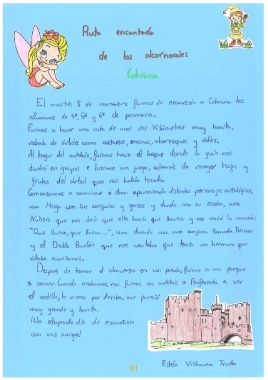 Ruta encantada
de los alcornocales
Cobrana
El martes 8 de noviembre fuimos de excursión a Cobrana los
alumnos de 4º, 5º y 6º de primaria.
Fuimos a hacer una ruta de unos dos kilómetros muy bonita,
rodeada de árboles como castaños, encinas, alcornoques y robles.
Al bajar del autobús, fuimos hacia el bosque donde la guía nos
dividió en grupos e hicimos un juego, además de recoger hojas y
frutos del árbol que nos había tocado.
Comenzamos a caminar e iban apareciendo distintos personajes mitológicos,
una Meiga con sus conjuros y gorro y dando con su escoba, una
que no dejó que ella
"Que llueva, que llueva...", una
y el Diablo Burlón que nos contaba que tenía un hermano por
Después de tomar el almuerzo en un prado, fuimos a un parque
a comer. Cuando acabamos, nos fuimos en autobús a Ponferrada a ver
el castillo, lo vimos por dentro, me pareció
muy grande y bonito.
¡Un estupendo día de excursión
con mis amigos!
51